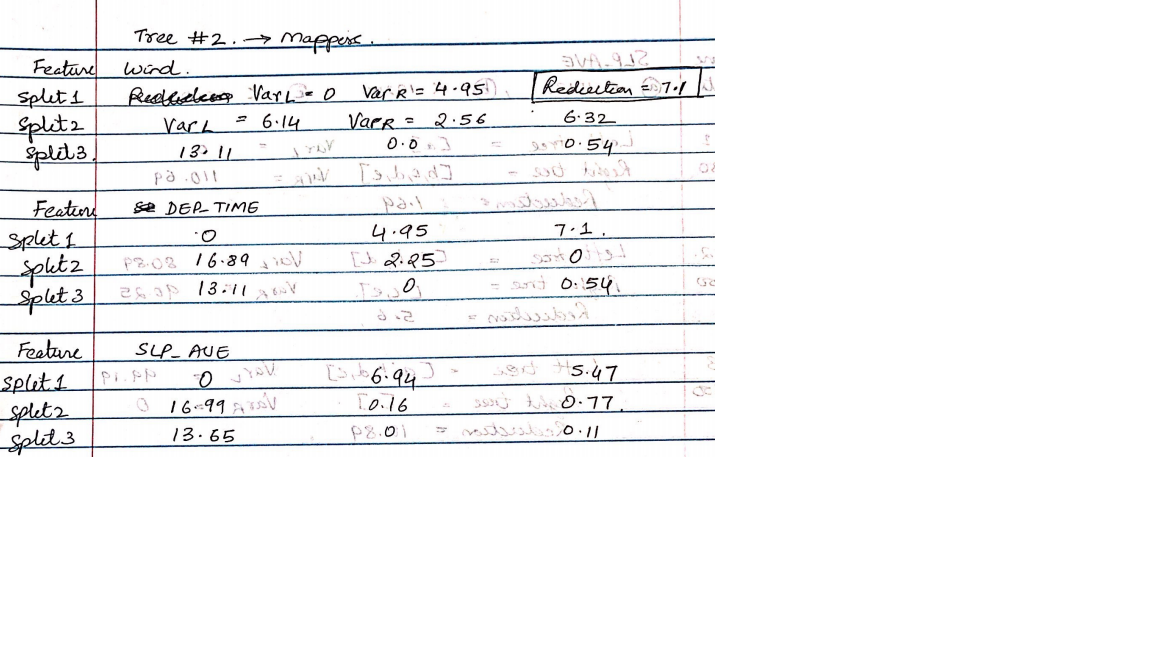 Tree #2. → Mappers.
Feature Wind.
Split 1 VarL = 0 VarR = 4.95 Reduction = 7.1
Split 2 VarL = 6.14 VarR = 2.56 6.32
Split 3. 13.11 0.0 0.54
Feature DEP_TIME
Split 1 0 4.95 7.1.
Split 2 16.89 2.25 0
Split 3 13.11 0 0.54
Feature SLP_AVE
Split 1 0 6.94 5.47
Split 2 16.99 0.16 0.77.
Split 3 13.65 0 0.11